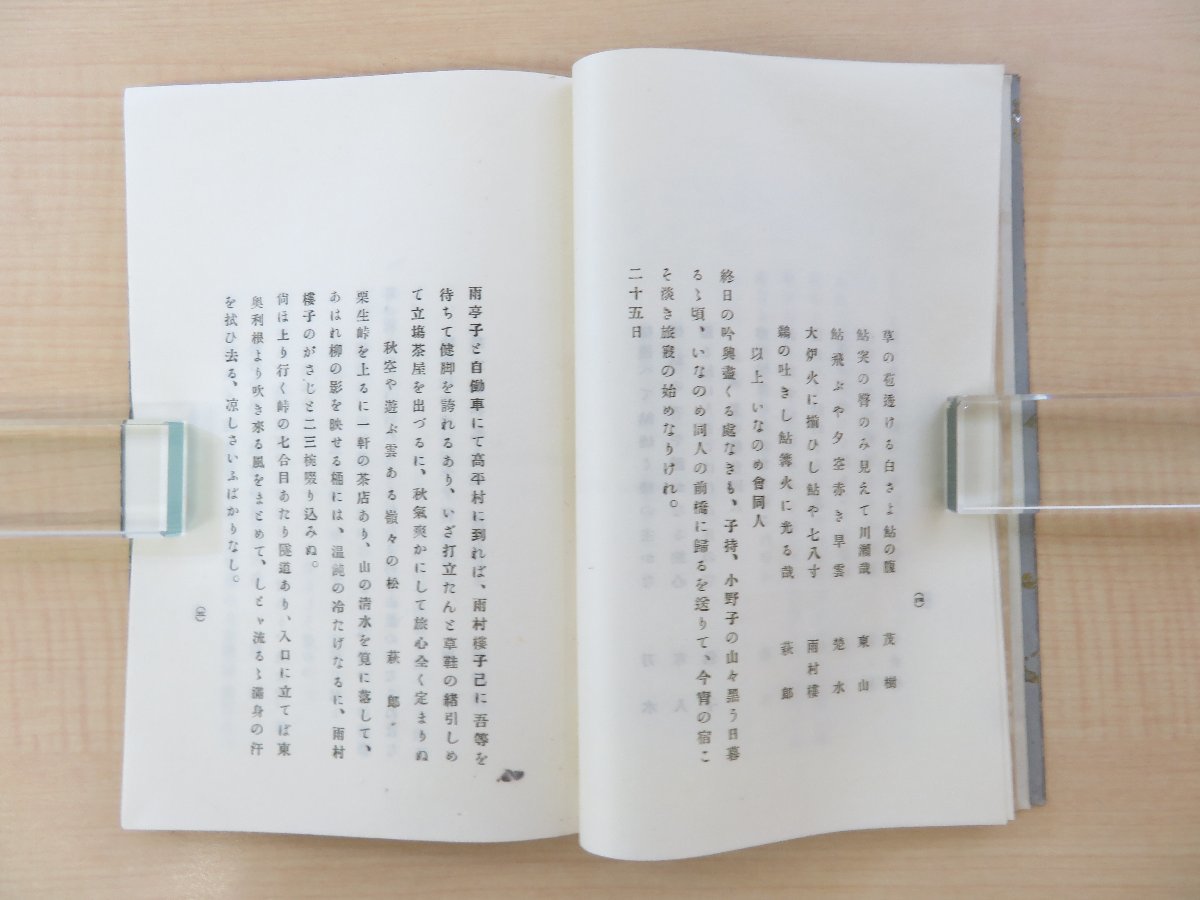 草の苞透ける白さよ鮎の腹　茂樹
鮎突の聲のみ見えて川瀬哉　東山
鮎飛ぶや夕空赤き旱雲　楚水
大炉火に揃ひし鮎や七八寸　雨村樓
鵜の吐きし鮎篝火に光る哉　萩郎
以上　いなのめ會同人
終日の吟興盡くる處なきも、子持、小野子の山々黑う日暮
るゝ頃、いなのめ同人の前橋に歸るを送りて、今宵の宿こ
そ淡き旅寢の始めなりけれ。
二十五日
（四）
雨亭子と自働車にて高平村に到れば、雨村樓子已に吾等を
待ちて健脚を誇れるあり、いざ打立たんと草鞋の緒引しめ
て立塲茶屋を出づるに、秋氣爽かにして旅心全く定まりぬ
秋空や遊ぶ雲ある嶺々の松　萩郎
栗生峠を上るに一軒の茶店あり、山の清水を筧に落して、
あはれ柳の影を映せる桶には、溫飩の冷たげなるに、雨村
樓子のがさじと二三椀啜り込みぬ。
尙ほ上り行く峠の七合目あたり隧道あり、入口に立てば東
奥利根より吹き來る風をまとめて、しとゞ流るゝ滿身の汗
を拭ひ去る、凉しさいふばかりなし。
（五）